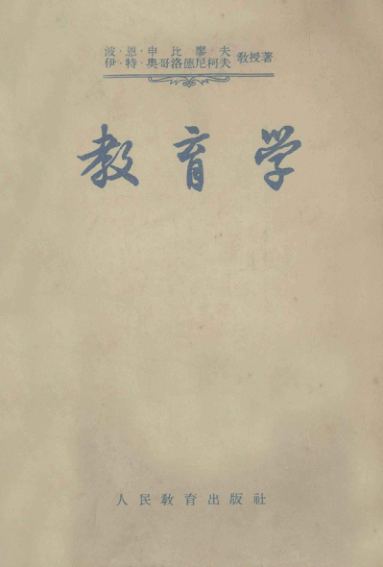 波·恩·申比廖夫
伊·特·奥哥洛德尼柯夫 教授著
教育学
人民教育出版社